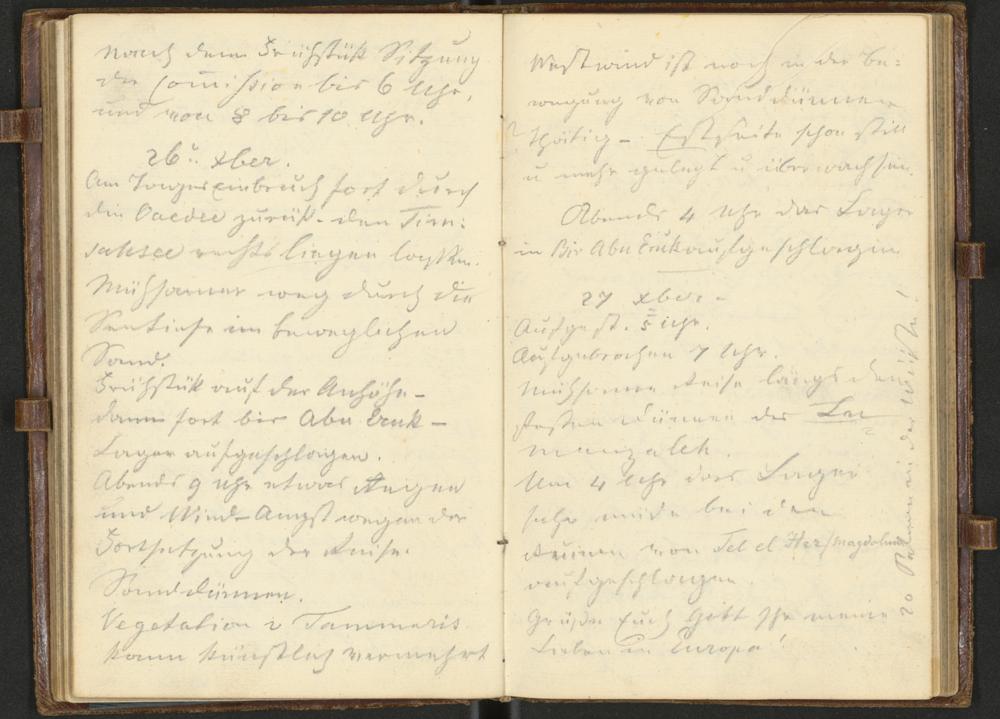 Nach dem Frühstük Sitzung
der Commission bis 6 Uhr,
und von 8 bis 10 Uhr.
26. xber.
Am Tageseinbruch fort durch
die Oaedee zurük - den Tim:
sahsee rechts liegen lassen.
Mühsamer weg durch die
im beweglichen
Sand.
Frühstük auf der Anhöhe -
dann fort bis Abu Eruk -
Lager aufgeschlagen.
Abends 9 Uhr etwas Regen
und Wind - Angst wegen der
Fortsetzung der Reise.
Sanddünnen.
Vegetation v Tammaris
kann künstlich vermehrt
Westwind ist noch in der Be:
wegung von Sanddünnen
thätig - Ostseite schon still
u mehr gelegt u überwachsen.
Abends 4 Uhr das Lager
in Bir Abu Eruk aufgeschlagen
27 xber. -
Aufgest. 5 Uhr.
Aufgebrochen 7 Uhr.
Mühsame Reise längs den
Dünnen des Lac
Menzaleh.
Um 4 Uhr das Lager
sehr müde bei den
Ruinen von Tel el Her/Magdolum
aufgeschlagen.
Grüße Euch Gott Ihr meine
Lieben in Europa!
20 in der Wüste!